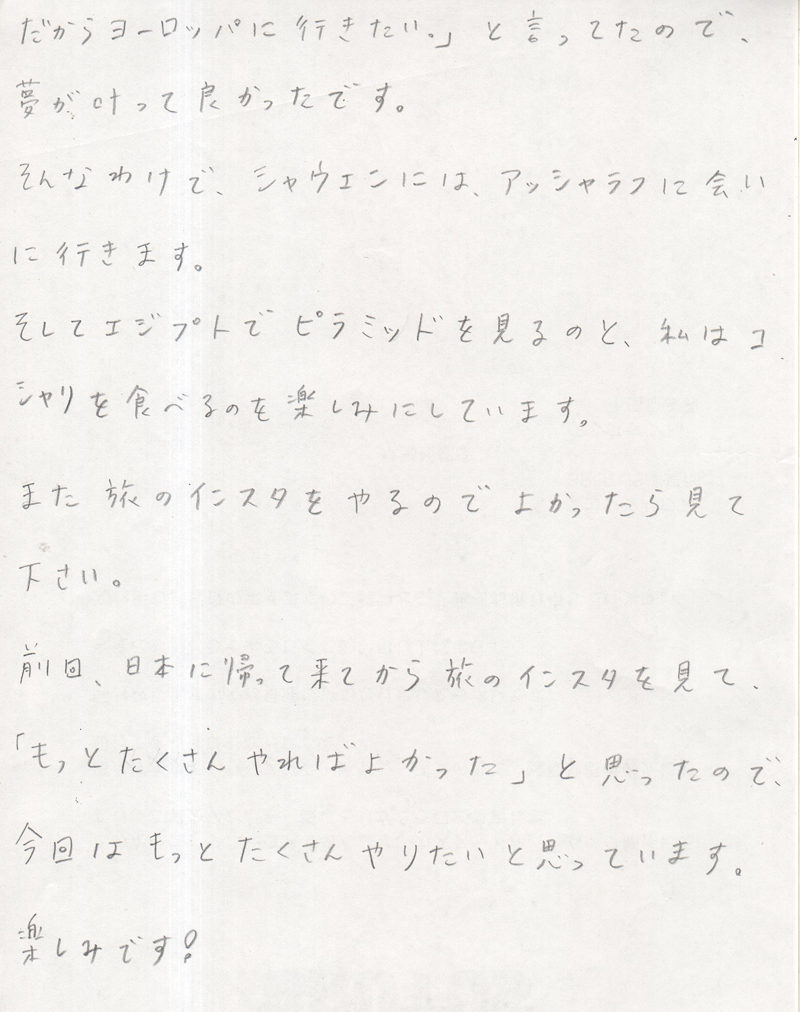 だからヨーロッパに行きたい。」と言ってたので、
夢が叶って良かったです。
そんなわけで、シャウエンには、アッシャラフに会い
に行きます。
そしてエジプトでピラミッドを見るのと、私はコ
シャリを食べるのを楽しみにしています。
また旅のインスタをやるのでよかったら見て
下さい。
前回、日本に帰って来てから旅のインスタを見て、
「もっとたくさんやればよかった」と思ったので、
今回はもっとたくさんやりたいと思っています。
楽しみです!